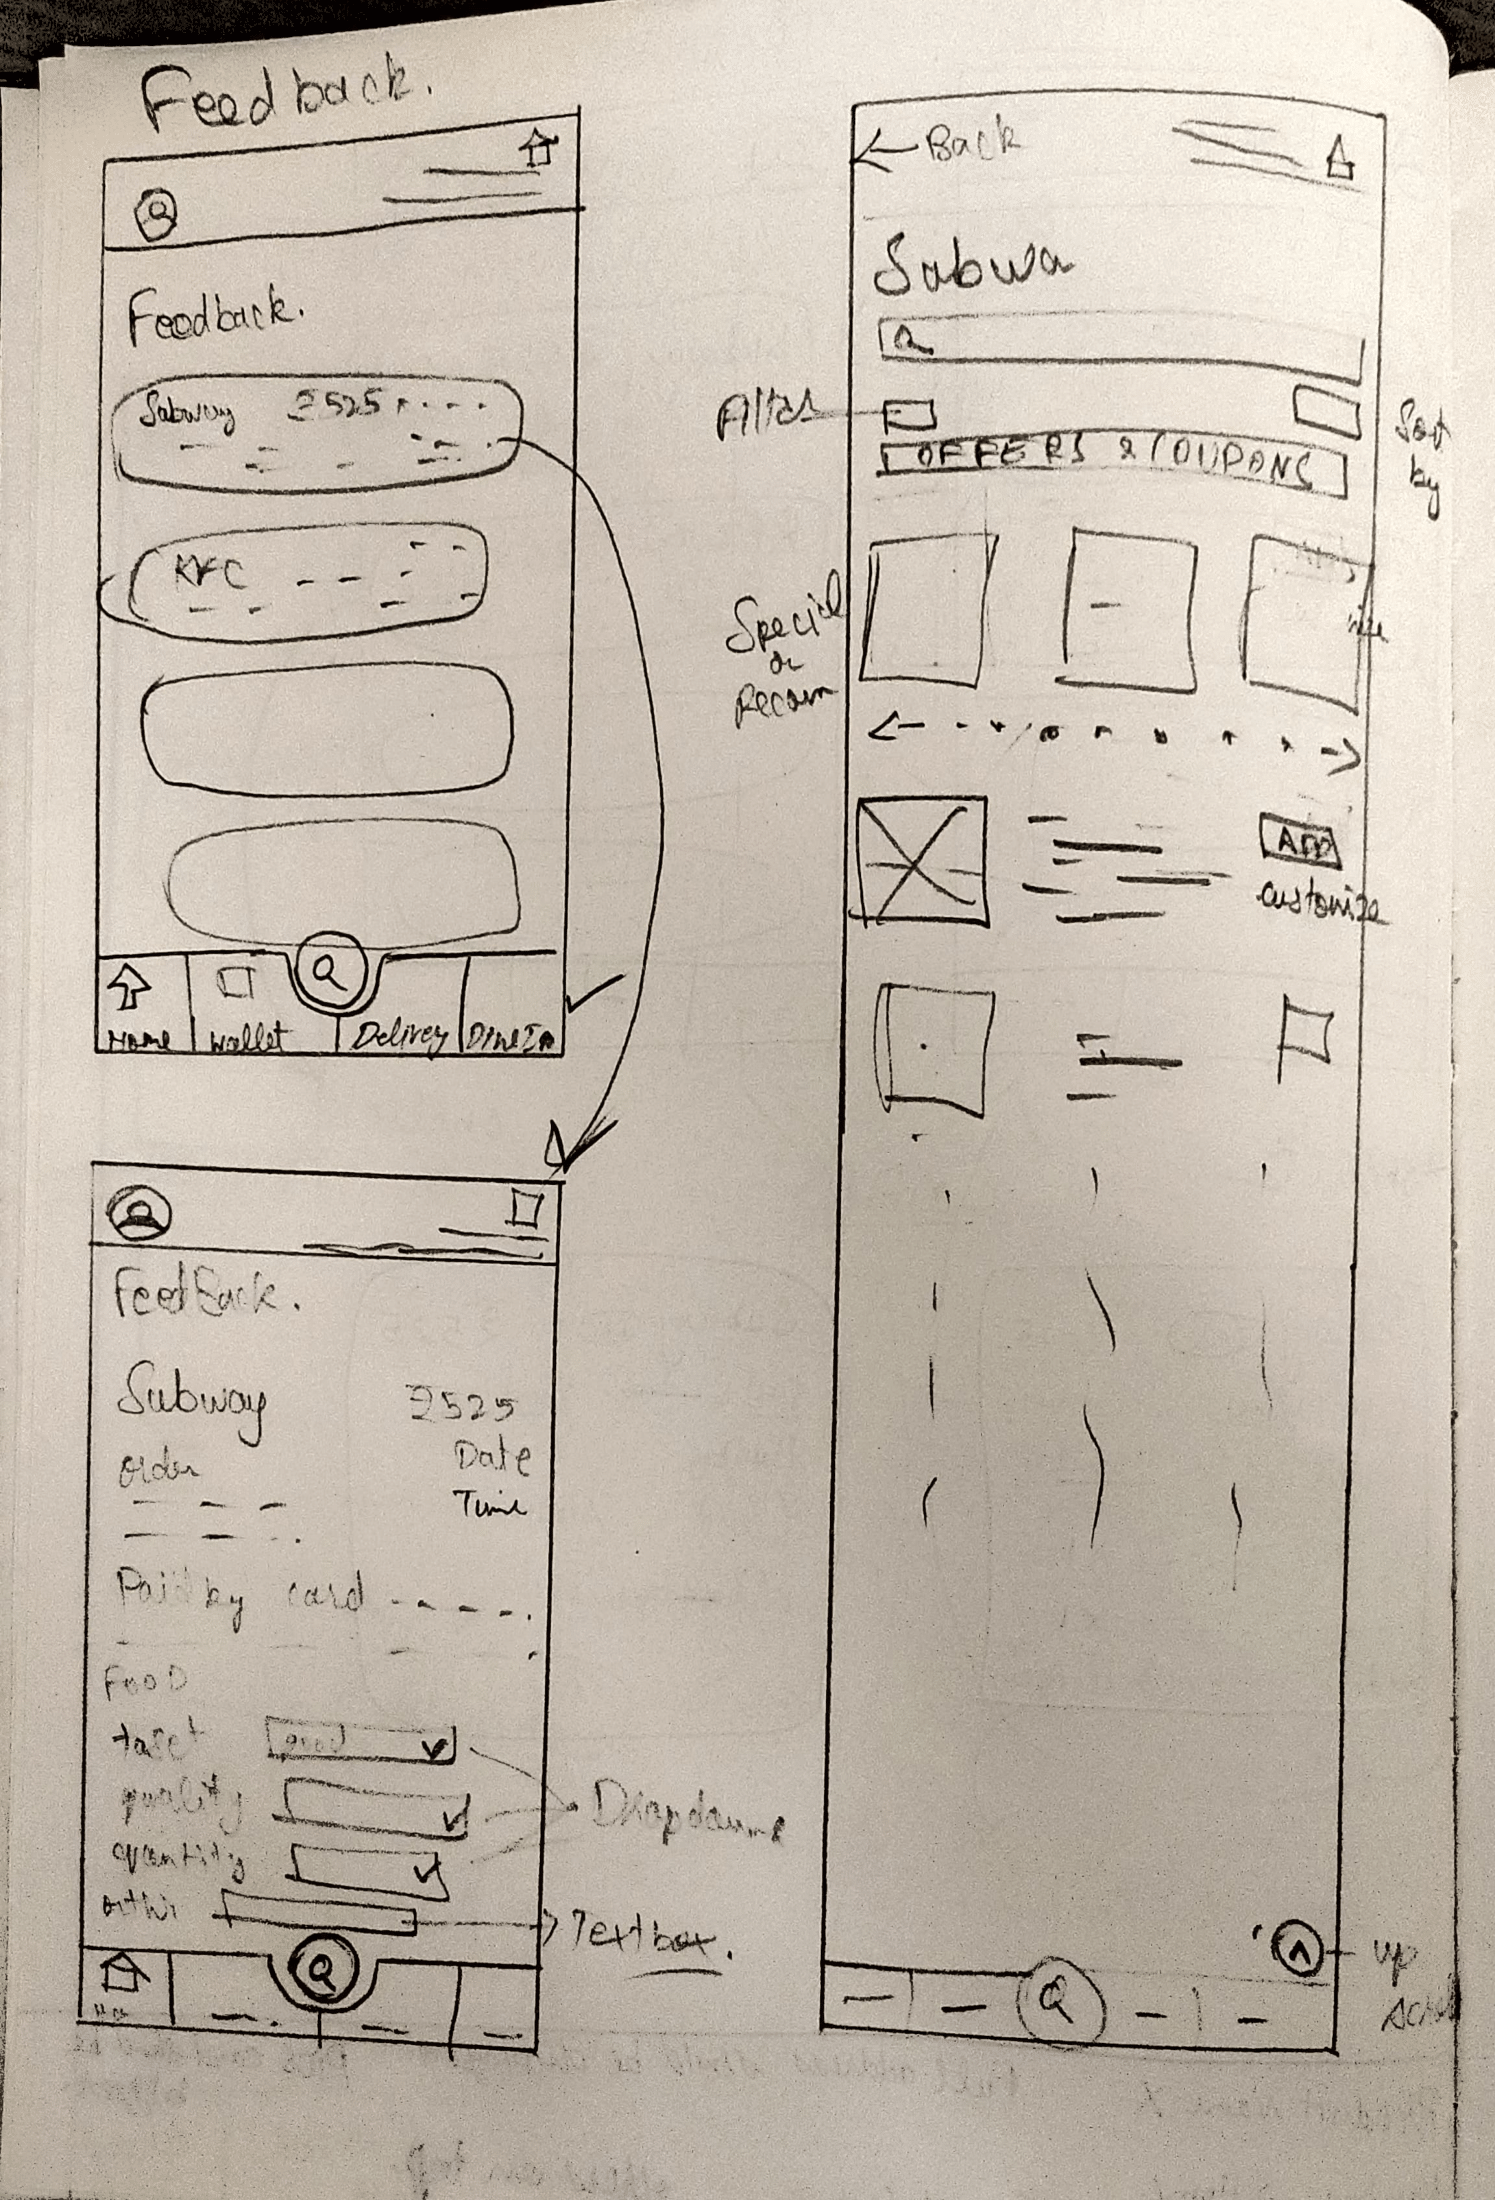 Feedback.
Feedback.
Subway ₹525
KFC
Home
Wallet
Delivery
Dine In
FeedBack.
Subway ₹525
order Date
Time
Paid by card
FOOD
quality
quantity
Textbox.
← Back
Subwa
Sort
by
OFFERS & COUPONS
Special
or
Recom
customize
up